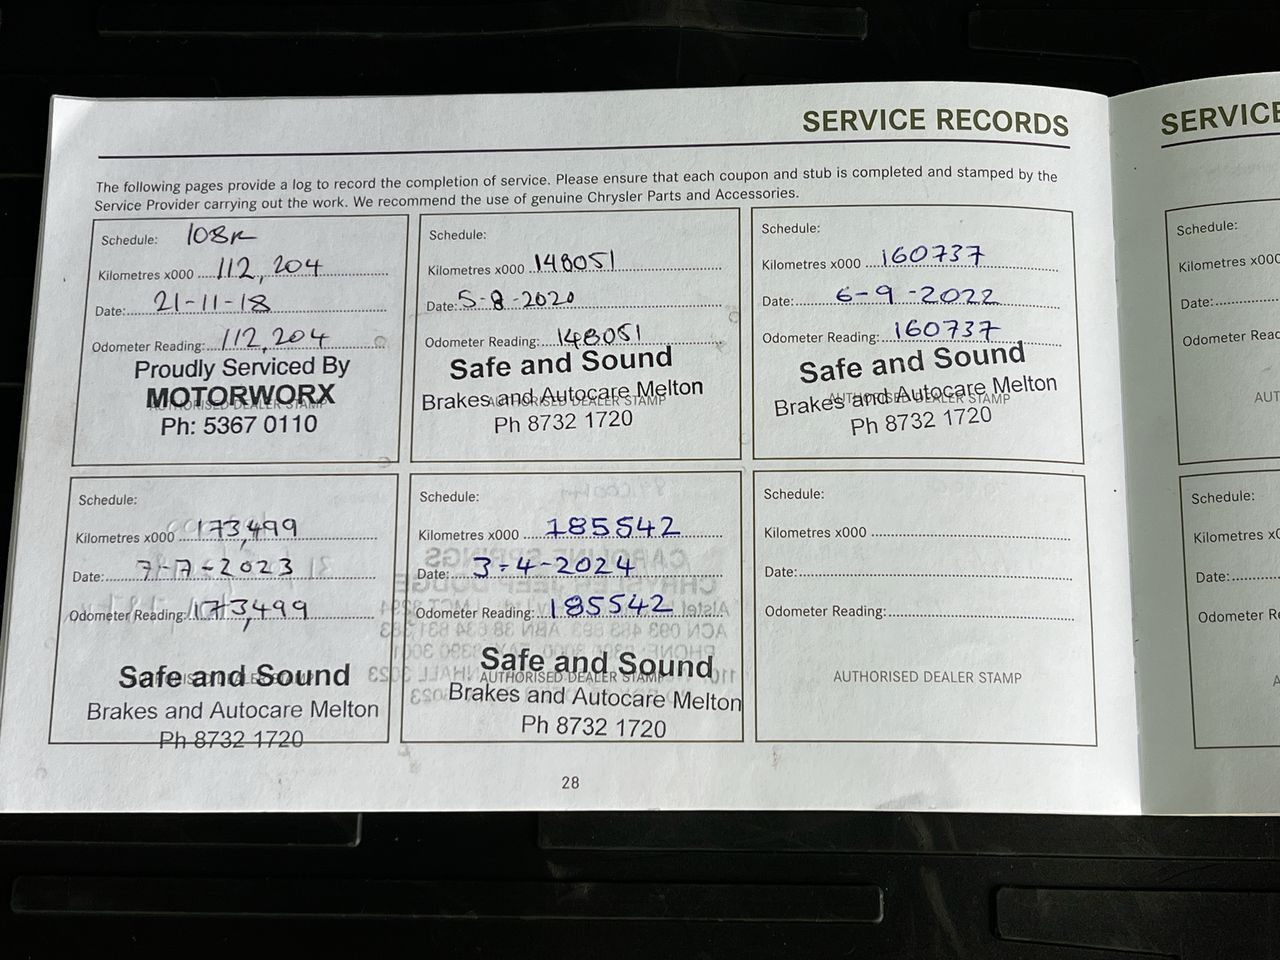 SERVICE RECORDS
The following pages provide a log to record the completion of service. Please ensure that each coupon and stub is completed and stamped by the
Service Provider carrying out the work. We recommend the use of genuine Chrysler Parts and Accessories.
Schedule: 108K
Kilometres x000 112,204
Date: 21-11-18
Odometer Reading: 112,204
Proudly Serviced By
MOTORWORX
AUTHORISED DEALER STAMP
Ph: 5367 0110
Schedule:
Kilometres x000 148051
Date: 5-8-2020
Odometer Reading: 148051
Safe and Sound
Brakes and Autocare Melton
AUTHORISED DEALER STAMP
Ph 8732 1720
Schedule:
Kilometres x000 160737
Date: 6-9-2022
Odometer Reading: 160737
Safe and Sound
Brakes and Autocare Melton
AUTHORISED DEALER STAMP
Ph 8732 1720
Schedule:
Kilometres x000 173,499
Date: 7-7-2023
Odometer Reading: 173,499
Safe and Sound
AUTHORISED DEALER STAMP
Brakes and Autocare Melton
Ph 8732 1720
Schedule:
Kilometres x000 185542
Date: 3-4-2024
Odometer Reading: 185542
Safe and Sound
AUTHORISED DEALER STAMP
Brakes and Autocare Melton
Ph 8732 1720
Schedule:
Kilometres x000
Date:
Odometer Reading:
AUTHORISED DEALER STAMP
28
SERVICE
Schedule:
Kilometres x000
Date:
Odometer Read
AUT
Schedule:
Kilometres x0
Date:
Odometer Re
A